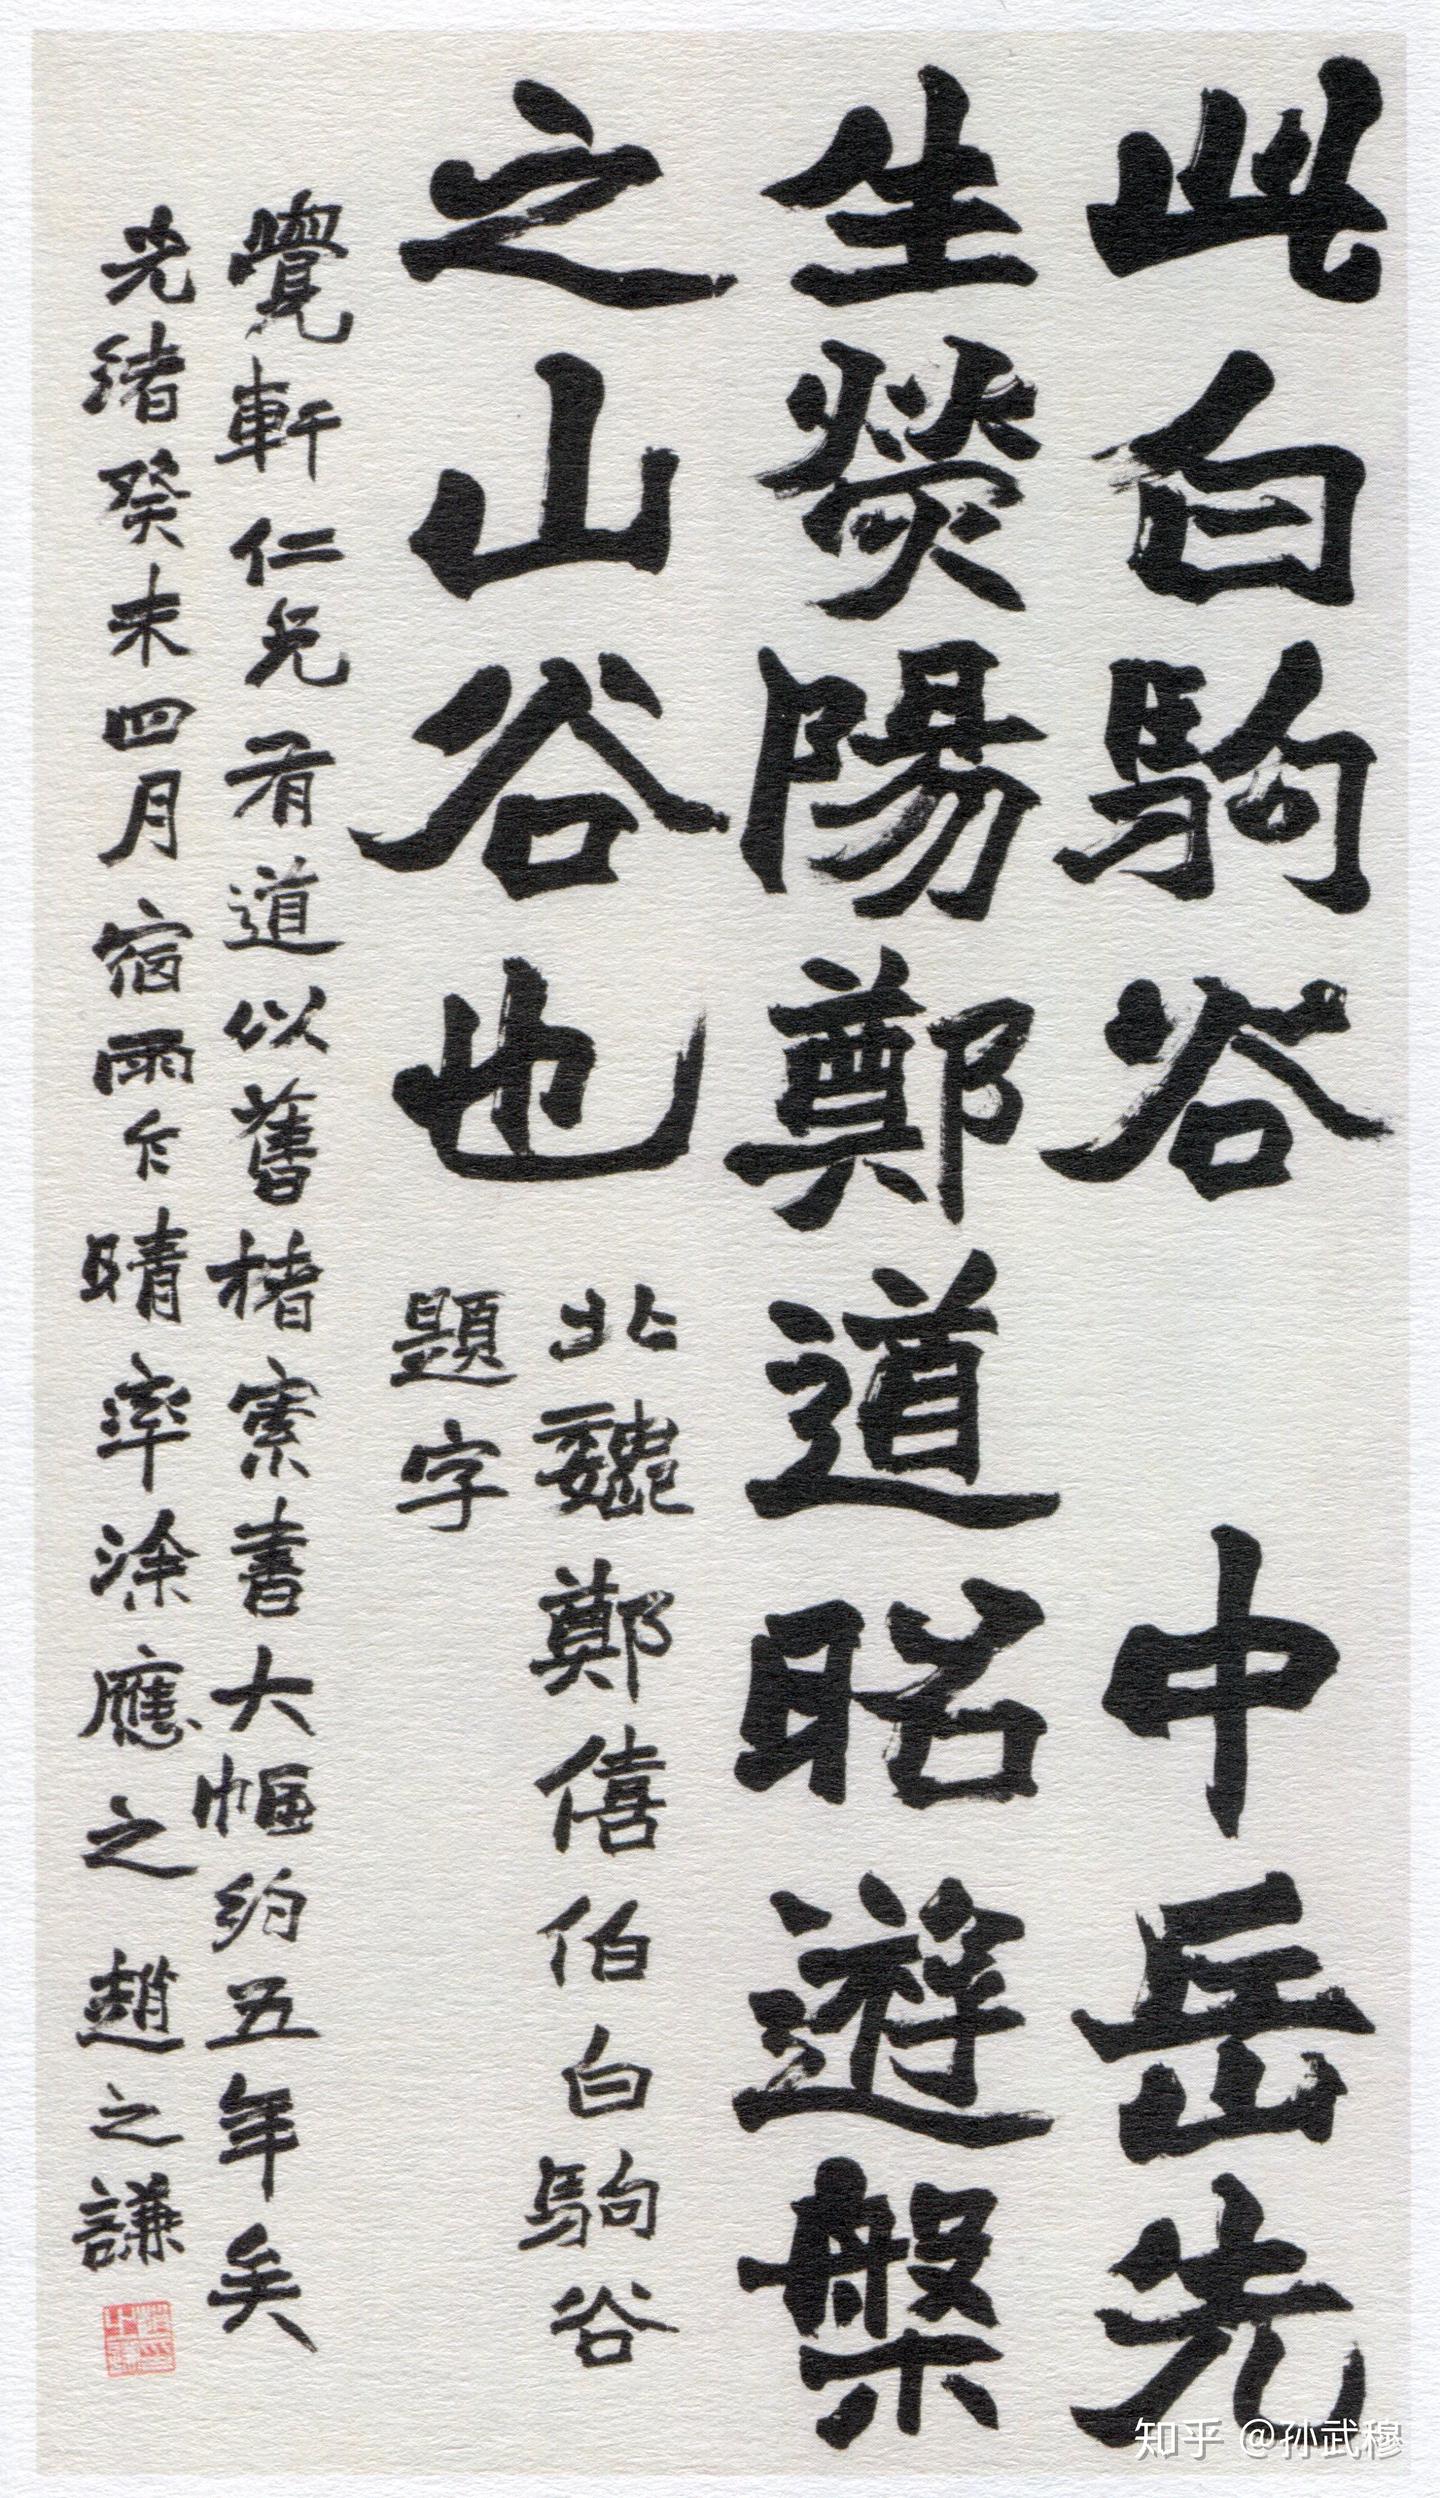 此白駒谷　中岳先
生熒陽鄭道昭遊槃
之山谷也
北魏鄭僖伯白駒谷
題字
覺軒仁兄有道以舊楮索書大幅約五年矣
光緒癸未四月宿雨乍晴率涂應之 趙之謙
知乎 @孙武穆